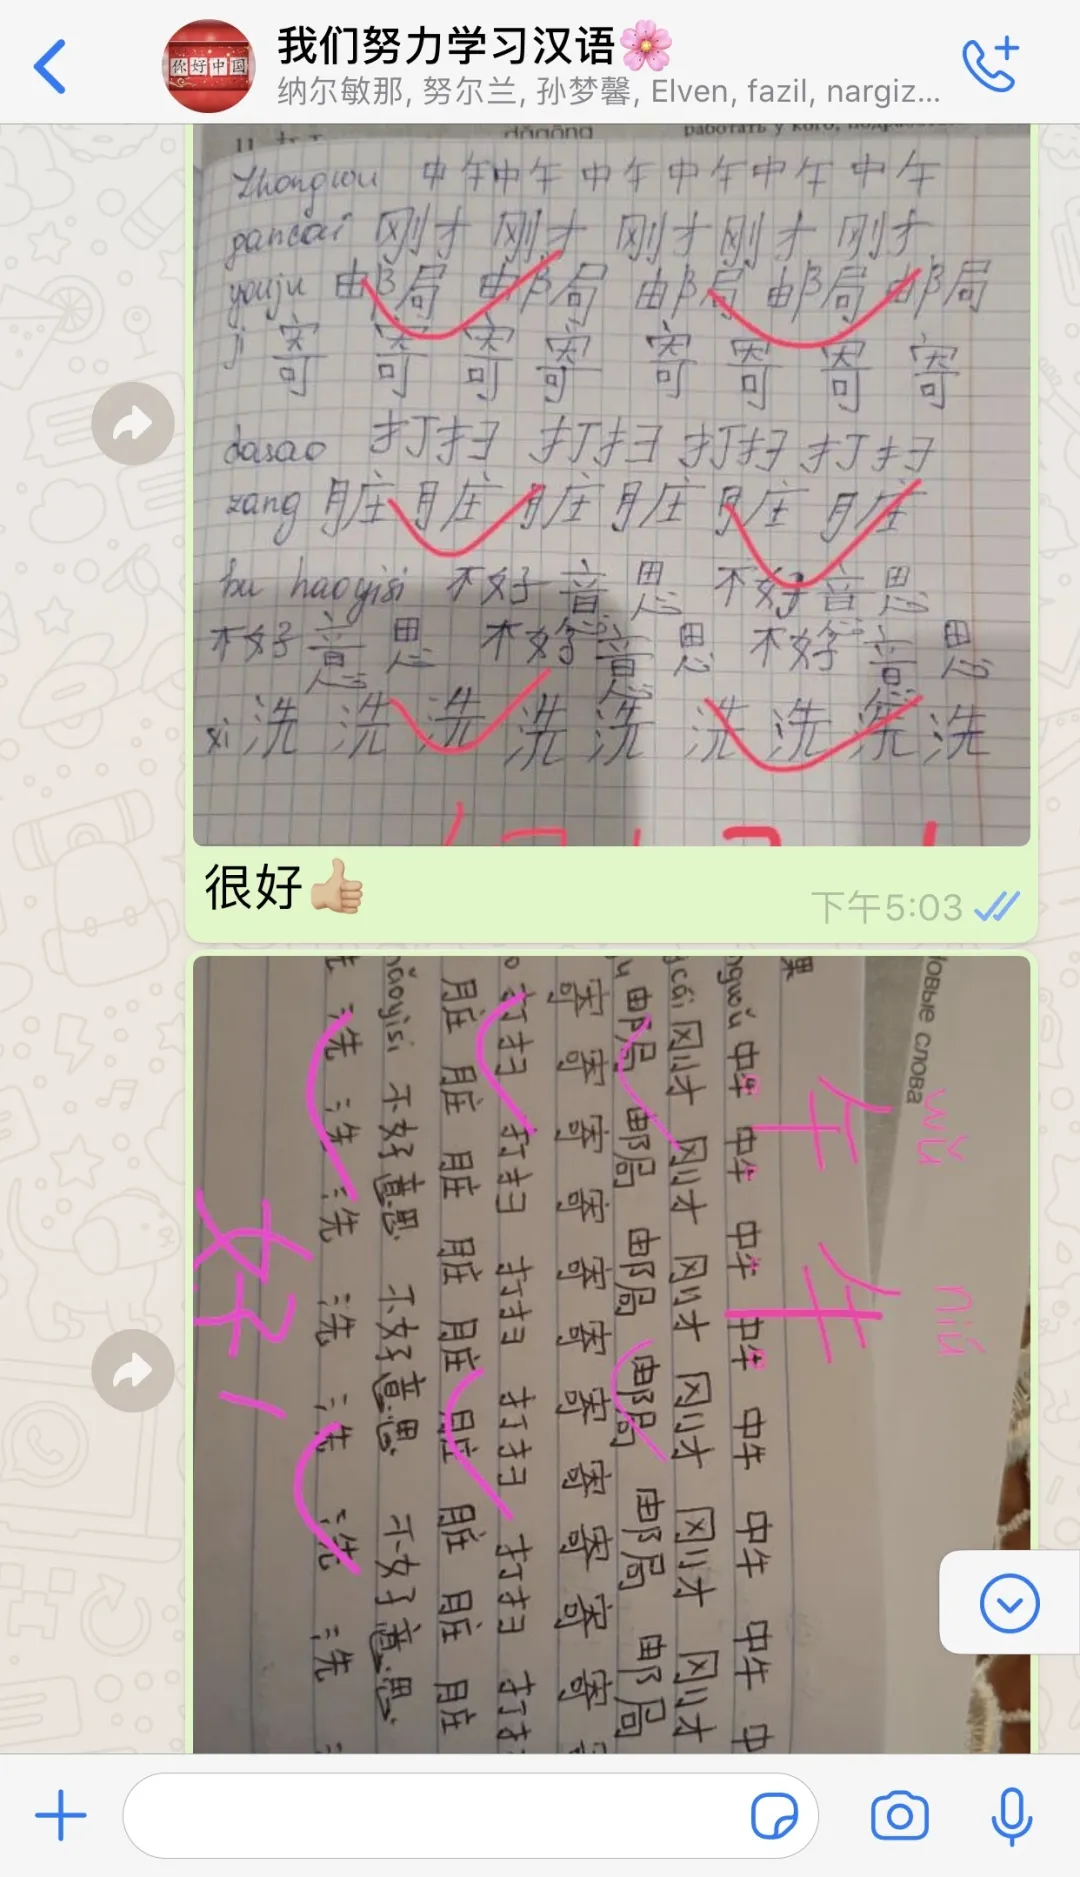 我们努力学习汉语🌸
你好中国
纳尔敏那, 努尔兰, 孙梦馨, Elven, fazil, nargiz...
zhongwu 中午 中午 中午 中午 中午 中午
gancai 刚才 刚才 刚才 刚才 刚才
youju 邮局 邮局 邮局 邮局 邮局
ji 寄 寄 寄 寄 寄 寄 寄 寄
dasao 打扫 打扫 打扫 打扫
zang 脏 脏 脏 脏 脏 脏
bu haoyisi 不好意思 不好意思
不好意思 不好意思 不好意思
xi 洗 洗 洗 洗 洗 洗 洗 洗 洗
很好👍🏼
下午5:03
овые слова
wǔ niú
午 牛
中牛 中牛 中牛 中牛 中牛 中牛 中牛 中
cái 刚才 刚才 刚才 刚才 刚才 刚才
邮局 邮局 邮局 邮局 邮局 邮局
寄 寄 寄 寄 寄 寄 寄 寄 寄 寄 寄
打扫 打扫 打扫 打扫 打扫 打扫
脏 脏 脏 脏 脏 脏 脏 脏 脏
ǎoyisi 不好意思 不好意思 不好意思
洗 洗 洗 洗 洗 洗 洗
好!